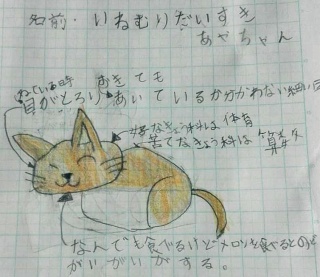 名前・いねむりだいすき
あやちゃん
ねている時 おきても
目がとろり あいているか分かわない細い目
好なきょう科は 体育
苦てなきょう科は 算数
なんでも食べるけどメロンを食べるとのどが
がいがいがする。